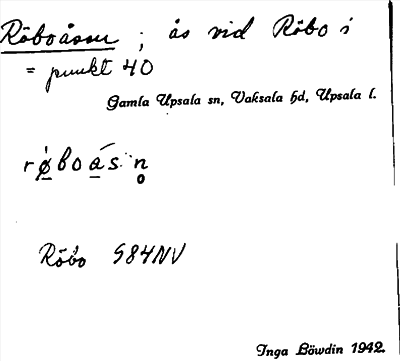 Röboåsen ; ås vid Röbo i
= punkt 40
Gamla Upsala sn, Vaksala hd, Upsala l.
røboås:n̥
Röbo 984NV
Inga Löwdin 1942.